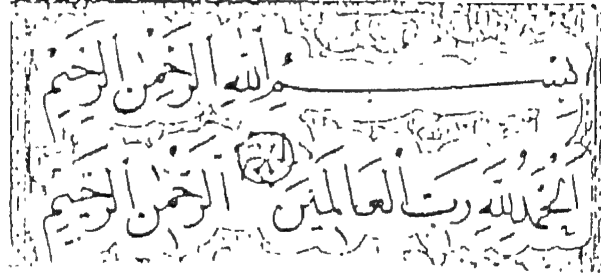 بِسْمِ اللَّهِ الرَّحْمَٰنِ الرَّحِيمِ
الْحَمْدُ لِلَّهِ رَبِّ الْعَالَمِينَ الرَّحْمَٰنِ الرَّحِيمِ